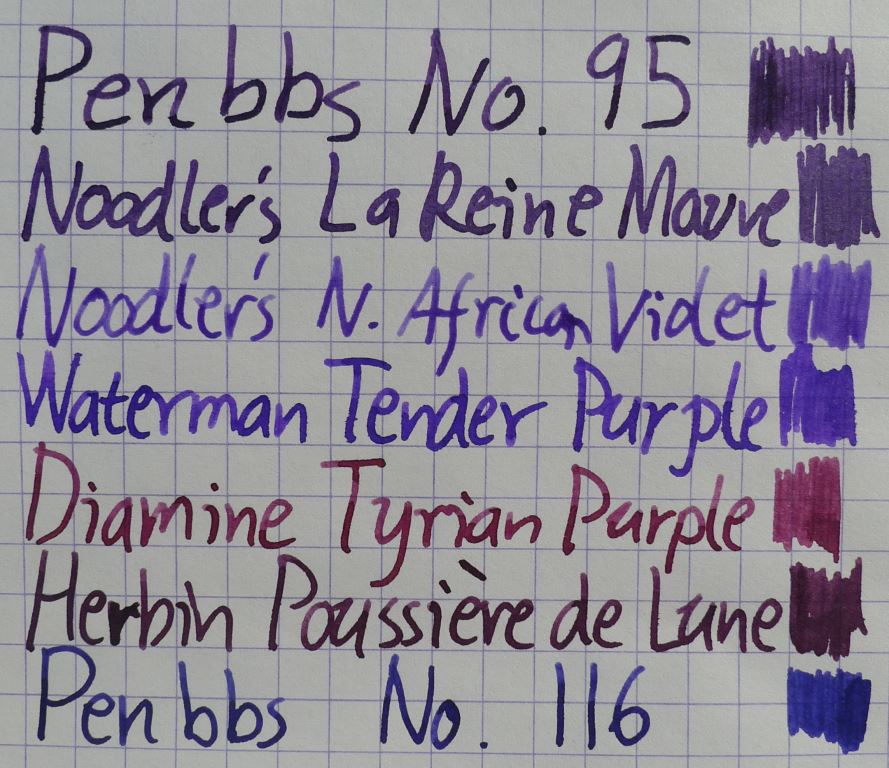 Penbbs No. 95
Noodler's La Reine Mauve
Noodler's N. African Violet
Waterman Tender Purple
Diamine Tyrian Purple
Herbin Poussière de Lune
Penbbs No. 116